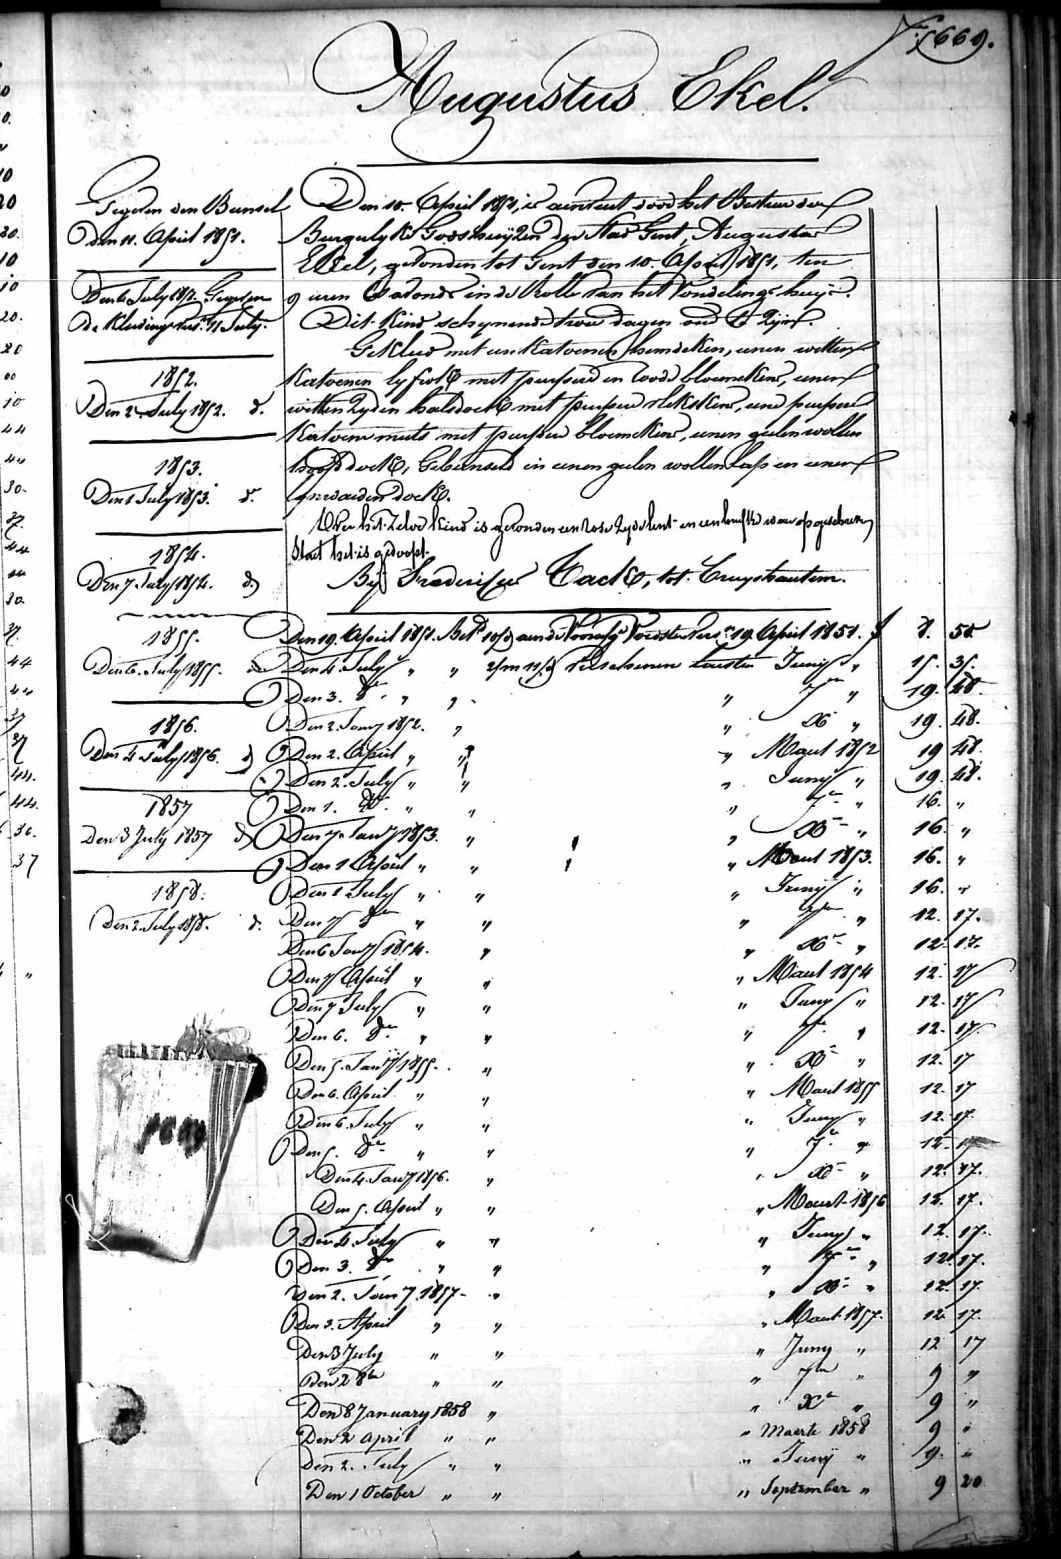 669.
Augustus Ekel.
Gegeven den Bunsel
Den 11. April 1851.
Den 6 July 1851. Gegeven
de Kleeding
11 July.
1852.
Den 2 July 1852. d.
1853.
Den 1 July 1853. d.
1854.
Den 7 July 1854. d
1855.
Den 6. July 1855.
1856.
Den 4 July 1856. d
1857
Den 3 July 1857 d
1858.
Den 2 July 1858. d.
Den 10. April 1851, is door het Bestuer der
Burgelyke Godshuijzen der Stad Gent, Augustus
Ekel, gevonden tot Gent den 10. April 1851, ten
9 uren 's avonds in de Rolle van het Vondelinge huijs.
Dit Kind schynende twee dagen oud te zijn.
Gekleed met een Katoenen hemdeken, eenen witten
Katoenen lyfrok met purpere en roode bloemekens, eenen
witten Zyden halsdoek met purpere, eene purpere
Katoene muts met purpere bloemekens, eenen geelen wollen
hoofddoek, Gebunseld in eenen geelen wollen lap en eenen
doek.
Over het zelve kind is gevonden een roze Zyde lint en een briefke waer op geschreven
Staet het is gedoopt.
Bij Frederic Tack, tot Cruyshautem.
Den 19. April 1851. 19 April 1851. f 8. 50
Den 4. July " " verschenen Juny " 15. 35.
Den 3. 8re " " " 7re " 19. 48.
Den 2. Jany 1852. " " Xr " 19. 48.
Den 2. April " " " Maert 1852 19 48.
Den 2. July " " " Juny " 19. 48.
Den 1. 8re " " " 7re " 16. "
Den 7 Jany 1853. " " Xr " 16. "
Den 1 April " " " Maert 1853. 16. "
Den 1 July " " " Juny " 16. "
Den 7 8re " " " 7re " 12. 17.
Den 6 Jany 1854. " " Xr " 12. 17.
Den 7 April " " " Maert 1854 12. 17
Den 7 July " " " Juny " 12. 17
Den 6. 8re " " " 7re " 12. 17.
Den 5. Jany 1855. " " Xr " 12. 17
Den 6. April " " " Maert 1855 12. 17
Den 6. July " " " Juny " 12. 17.
Den 5. 8re " " " 7re " 12. 17
Den 4. Jany 1856. " " Xr " 12. 17.
Den 5. April " " " Maert 1856 12. 17.
Den 4 July " " " Juny " 12. 17.
Den 3. 8re " " " 7re " 12. 17.
Den 2. Jany 1857. " " Xr " 12. 17.
Den 3. April " " " Maert 1857. 12. 17.
Den 3 July " " " Juny " 12 17
Den 2 8re " " " 7re " 9 "
Den 8 January 1858 " " Xr " 9 "
Den 2 April " " " Maerte 1858 9 "
Den 2. July " " " Junij " 9. "
Den 1 October " " " September " 9 20